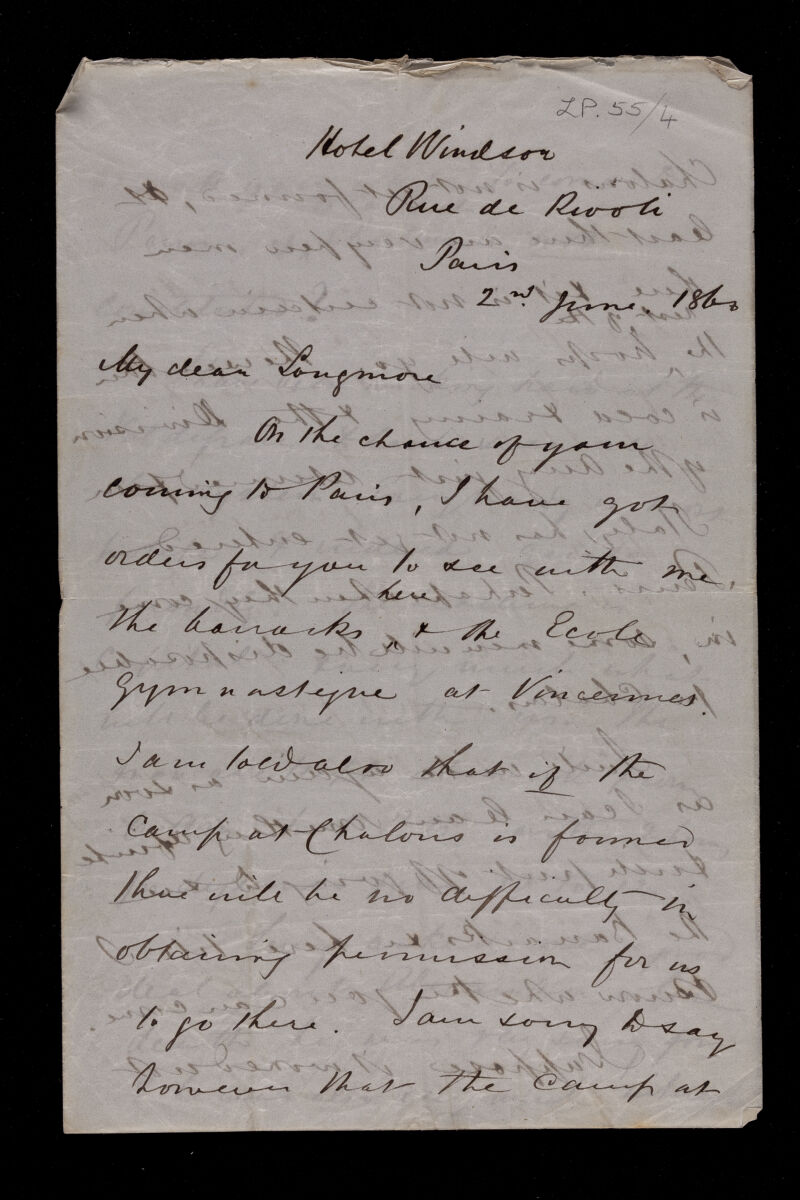 LP. 55/4
Hotel Windsor
Rue de Rivoli
Paris
2nd June, 1860
My dear Longmore
On the chance of your
coming to Paris, I have got
orders for you to see with me
here
the barracks & the Ecole
Gymnastique at Vincennes.
I am told also that if the
Camp at Chalons is formed
there will be no difficulty in
obtaining permission for us
to go there. I am sorry to say
however that the camp at